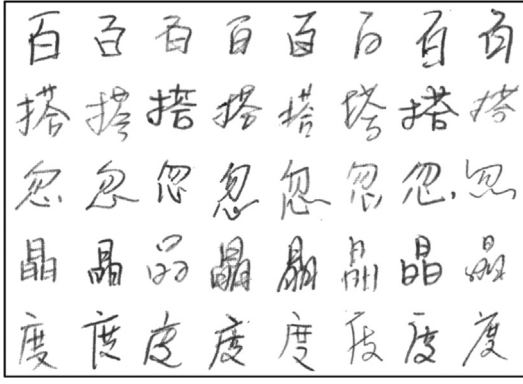 百百百百百百百百
搭搭搭搭搭搭搭搭
忽忽忽忽忽忽忽忽
晶晶晶晶晶晶晶晶
度度度度度度度度